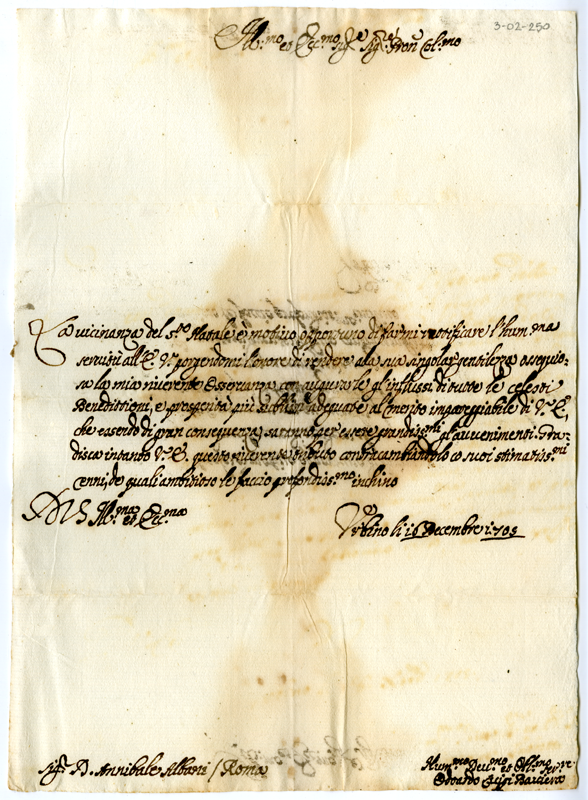 3-02-250
Ill.mo et Ecc.mo Sig.re Sig.re Pron Col.mo
La vicinanza del S.to Natale è motivo opportuno di farmi rettificare l'hum.ma
servitù all'E. V. porgendomi l'onore di rendere alla sua singolar gentilezza ossequio-
sa la mia riverente Osservanza con augurarle gl'influssi di tutte le celesti
Benedittioni, e prosperità più adequate al merito impareggiabile di V. E.,
che essendo di gran conseguenza saranno per essere grandiss.mi gl'avvenimenti. Gra-
disca intanto V. E. questo riverente tributo contracambiandolo co suoi stimatiss.mi
cenni, de quali ambitioso le faccio profondiss.mo inchino
D V S Ill.ma et Ecc.ma
Urbino li 16 Decembre 1705
Sig.r D. Annibale Albani / Roma
Hum.mo Dev.mo et Obl.mo Ser.re
Edoardo